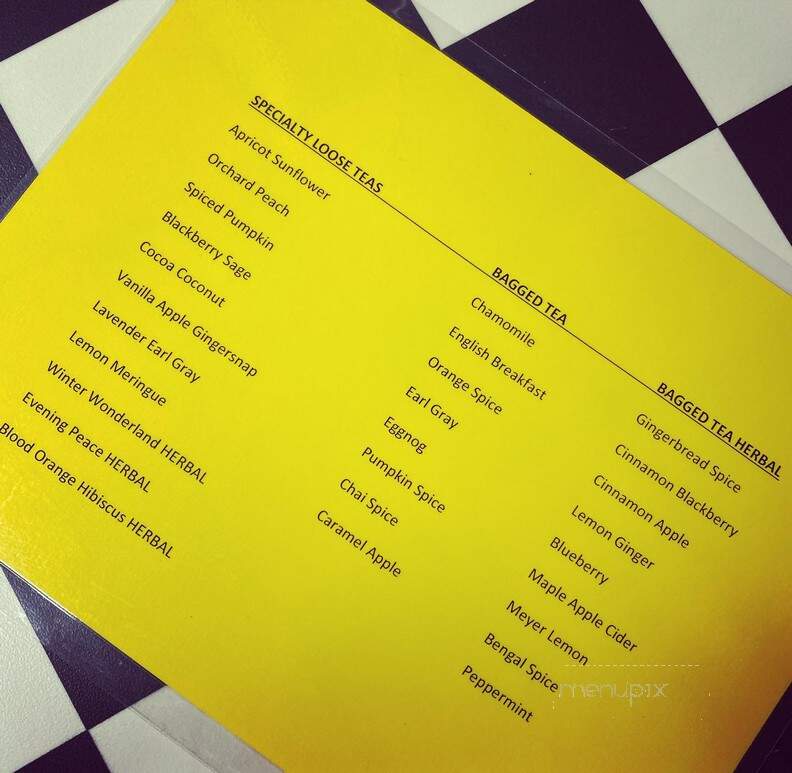 SPECIALTY LOOSE TEAS
Apricot Sunflower
Orchard Peach
Spiced Pumpkin
Blackberry Sage
Cocoa Coconut
Vanilla Apple Gingersnap
Lavender Earl Gray
Lemon Meringue
Winter Wonderland HERBAL
Evening Peace HERBAL
Blood Orange Hibiscus HERBAL
BAGGED TEA
Chamomile
English Breakfast
Orange Spice
Earl Gray
Eggnog
Pumpkin Spice
Chai Spice
Caramel Apple
BAGGED TEA HERBAL
Gingerbread Spice
Cinnamon Blackberry
Cinnamon Apple
Lemon Ginger
Blueberry
Maple Apple Cider
Meyer Lemon
Bengal Spice
Peppermint
menupix